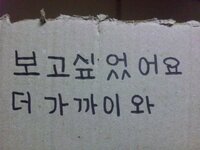 보고싶었어요
더 가까이 와